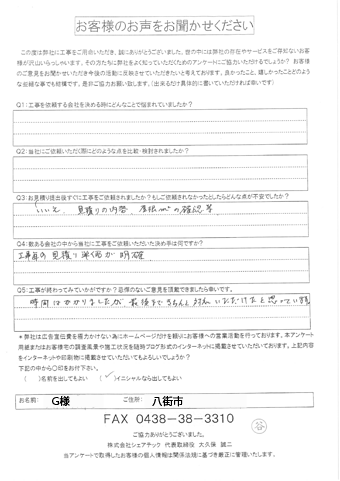 お客様のお声をお聞かせください
この度は弊社に工事をご用命いただき、誠にありがとうございました。世の中には弊社の存在やサービスをご存知ないお客
様が沢山いらっしゃいます。その方たちに弊社をよく知っていただくためのアンケートにご協力いただけるでしょうか？お客様
のご意見をお聞かせいただき今後の活動に反映させていただきたいと考えております。良かったこと、嬉しかったことどのよう
な些細な事でも結構です。是非ご協力お願い致します。（出来るだけ具体的に書いていただければ幸いです）
Q1：工事を依頼する会社を決める時にどんなことで悩まれていましたか？
Q2：当社にご依頼いただく際にどのような点を比較・検討されましたか？
Q3：お見積り提出後すぐに工事をご依頼されましたか？もしご依頼されなかったとしたらどんな点が不安でしたか？
いいえ、見積りの内容、屋根㎡の確認等
Q4：数ある会社の中から当社に工事をご依頼いただいた決め手は何ですか？
工事毎の見積り単価が明確
Q5：工事が終わってみていかがですか？忌憚のないご意見を頂戴できましたら幸いです。
時間はかかりましたが、最後まできちんと対応いただけたと思っています
＊弊社は広告宣伝費を極力かけない為にホームページだけを頼りにお客様への営業活動を行っております。本アンケート
用紙またはお客様宅の調査風景や施工状況を随時ブログ形式のインターネットに掲載させていただいております。上記内容
をインターネットや印刷物に掲載させていただいてもよろしいでしょうか？
下記の中から〇印をお付下さい。
（　）名前を出してもよい　（✓）イニシャルなら出してもよい
お名前：　G様　ご住所：　八街市
FAX 0438-38-3310
谷
ご協力ありがとうございました。
株式会社シェアテック 代表取締役 大久保 誠二
当アンケートで取得したお客様の個人情報は関係法規に基づき厳正に管理いたします。